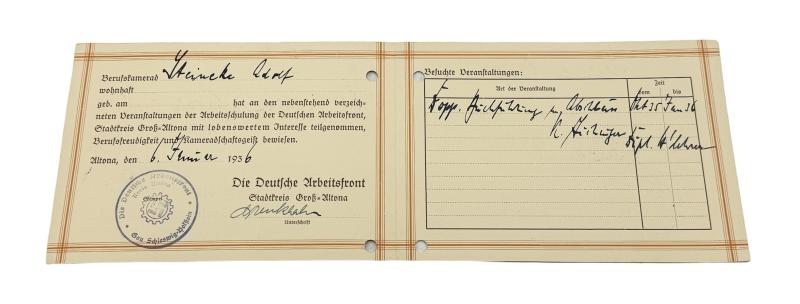 Berufskamerad Steincke Adolf
wohnhaft
geb. am hat an den nebenstehend verzeich-
neten Veranstaltungen der Arbeitsschulung der Deutschen Arbeitsfront,
Stadtkreis Groß-Altona mit lobenswertem Interesse teilgenommen,
Berufsfreudigkeit und Kameradschaftsgeist bewiesen.
Altona, den 6. Februar 1936
Die Deutsche Arbeitsfront
Stadtkreis Groß-Altona
Unterschrift
Die Deutsche Arbeitsfront
Kreis Altona
Stempel
Gau Schleswig-Holstein
Besuchte Veranstaltungen:
Art der Veranstaltung
Zeit
vom bis
Dopp. Buchführung m. Abschluss Okt 35 Jan 36
Dipl. H'lehrer